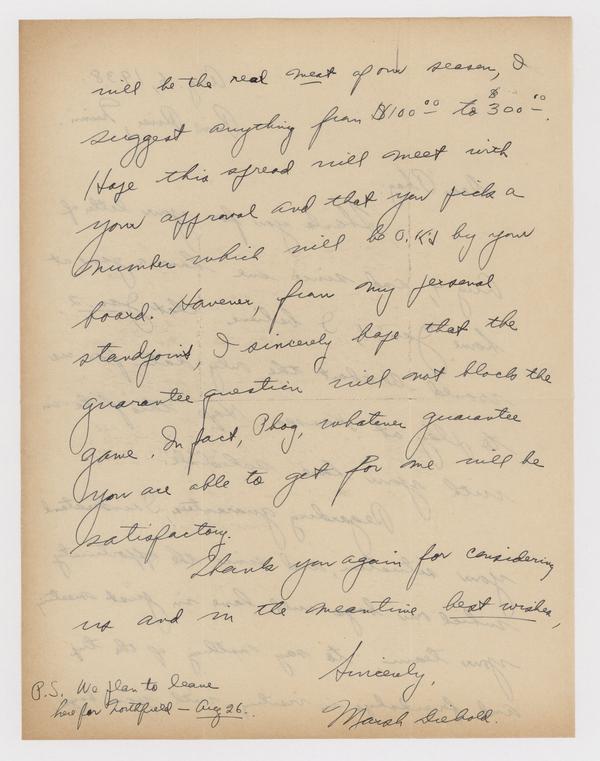 will be the real meat of our season, I
suggest anything from $100.00 to $300.00.
Hope this spread will meet with
your approval and that you pick a
number which will be O.K'd by your
board. However, from my personal
standpoint, I sincerely hope that the
guarantee question will not block the
game. In fact, Phog, whatever guarantee
you are able to get for me will be
satisfactory.
Thank you again for considering
us and in the meantime best wishes,
Sincerely,
Marsh Diebold.
P.S. We plan to leave
here for Northfield — Aug 26.